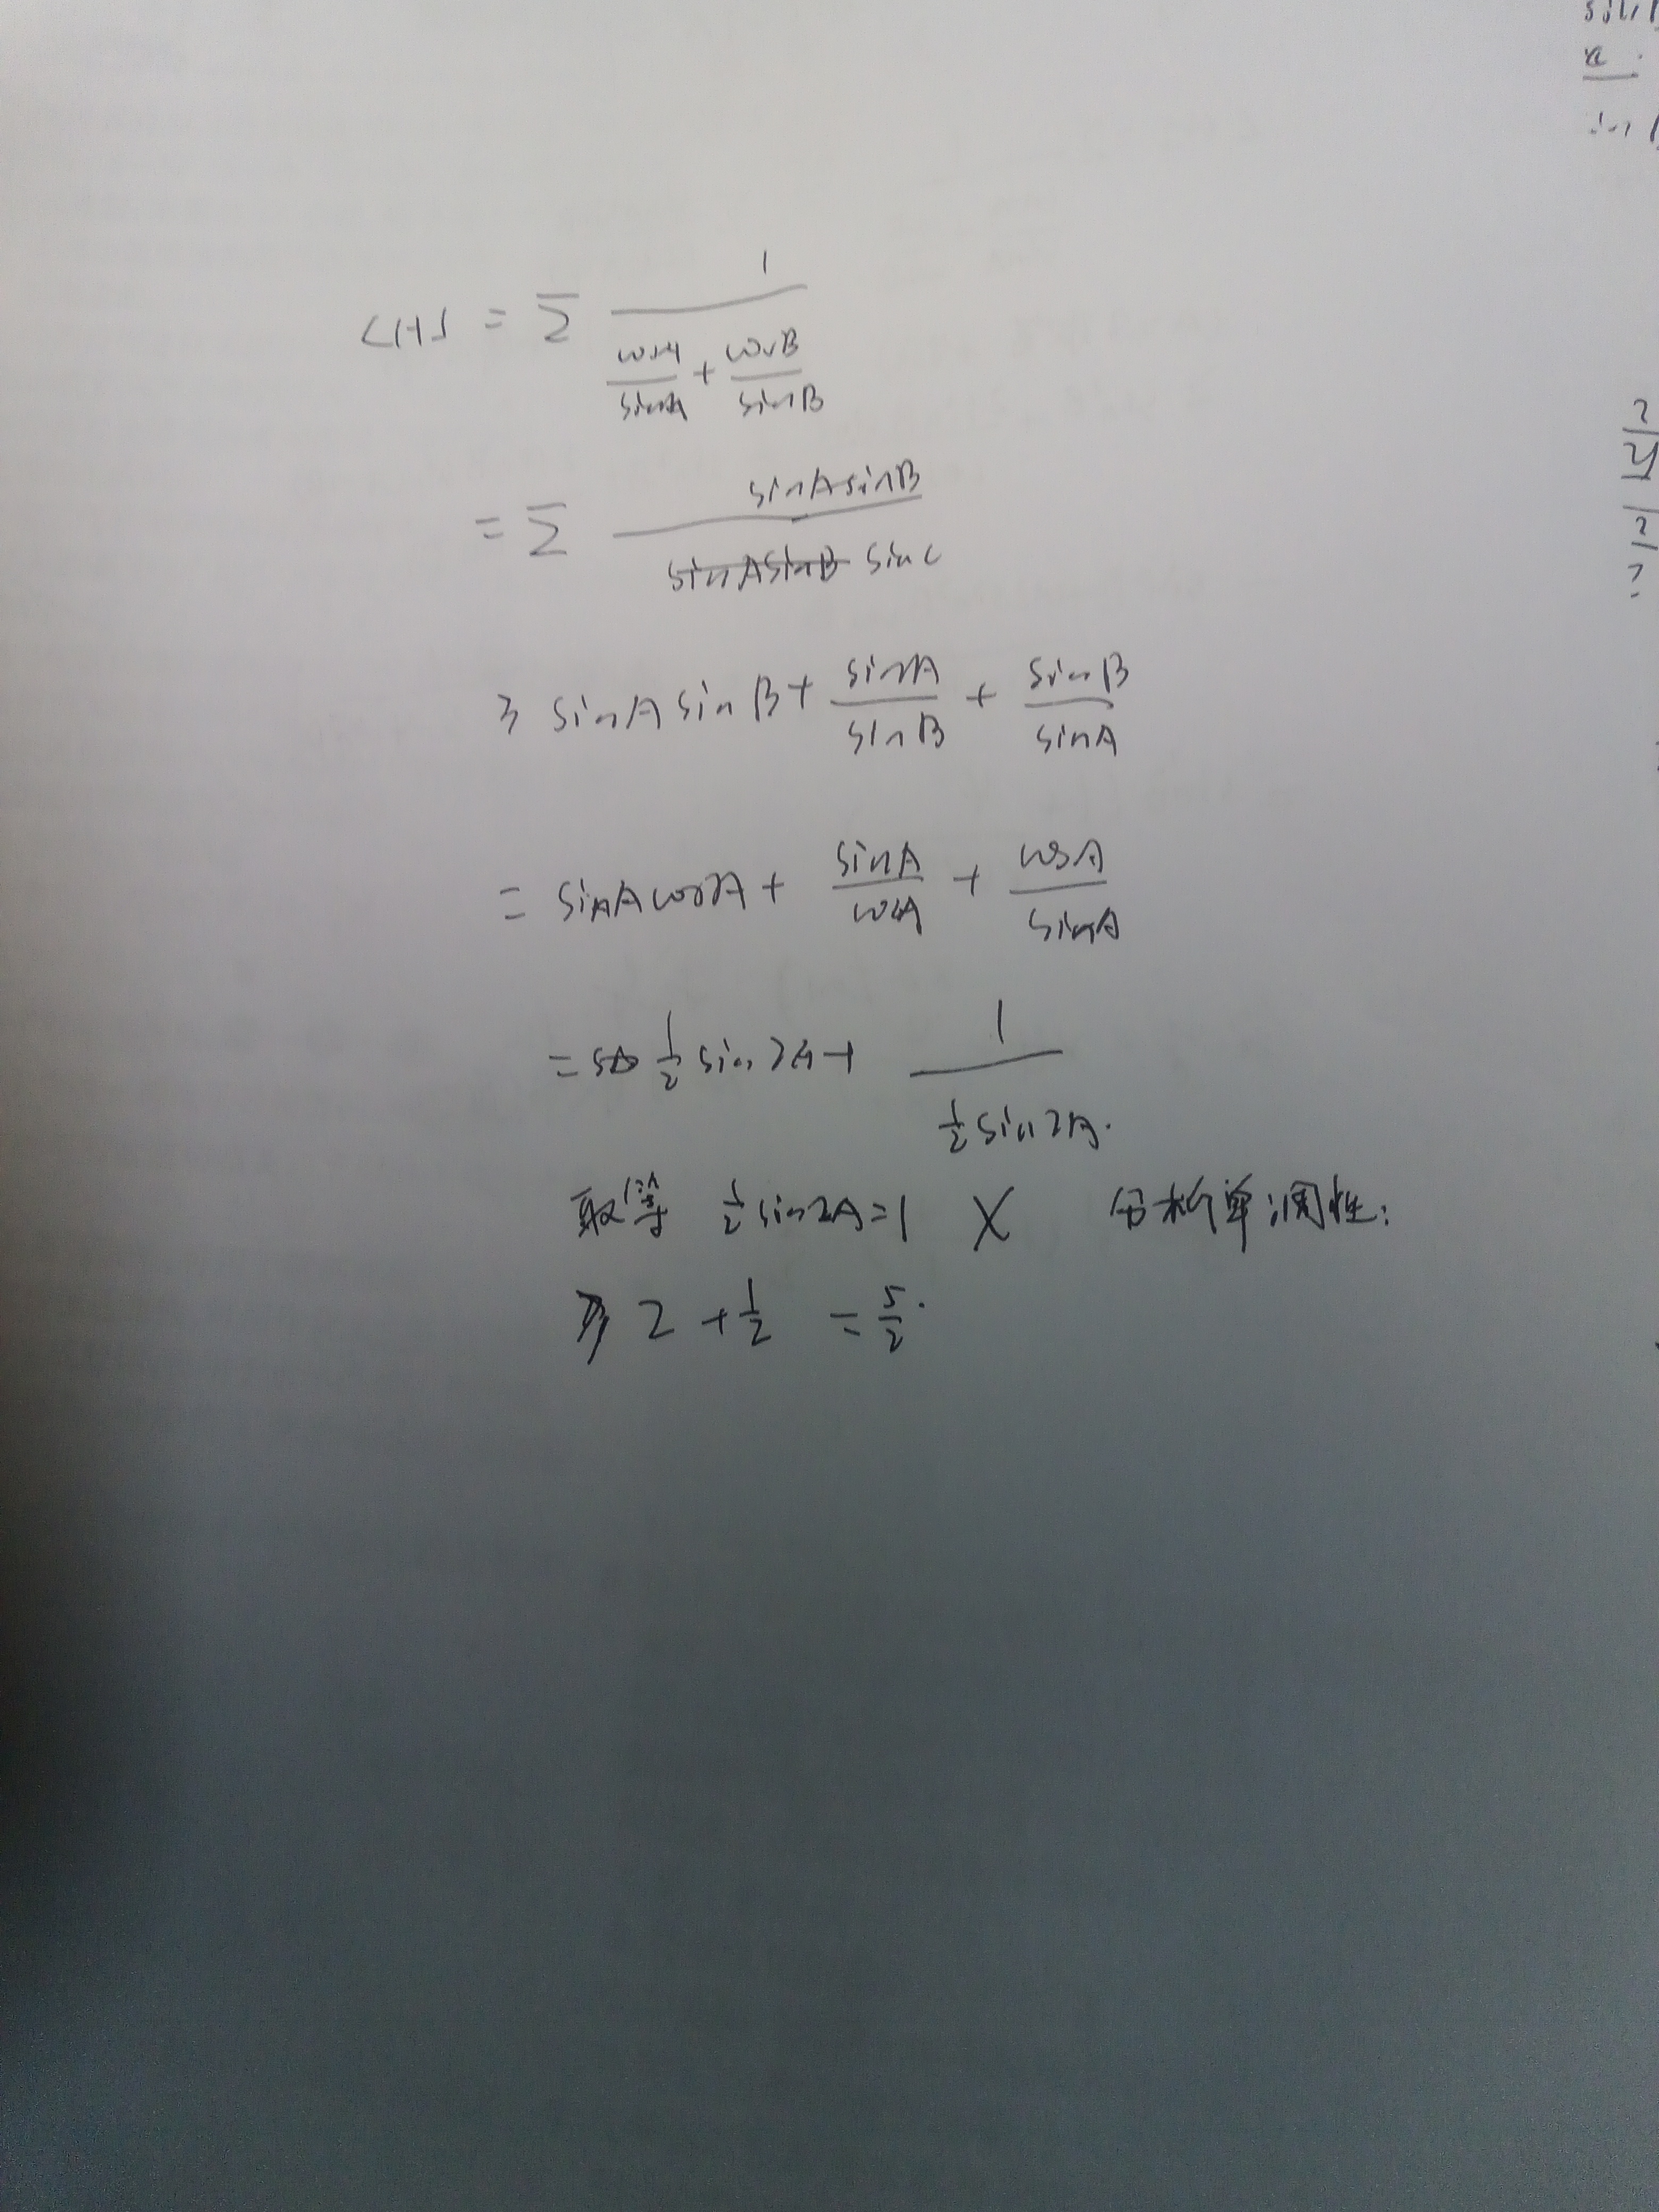 LHS = Σ 1/(cosA/sinA + cosB/sinB)
= Σ sinAsinB/(sinAsinB sinC)
≥ sinA sinB + sinA/sinB + sinB/sinA
= sinA cosA + sinA/cosA + cosA/sinA
= 1/2 sin2A + 1/(1/2 sin2A).
取等 1/2 sin2A = 1 X 分析单调性:
≥ 2 + 1/2 = 5/2.